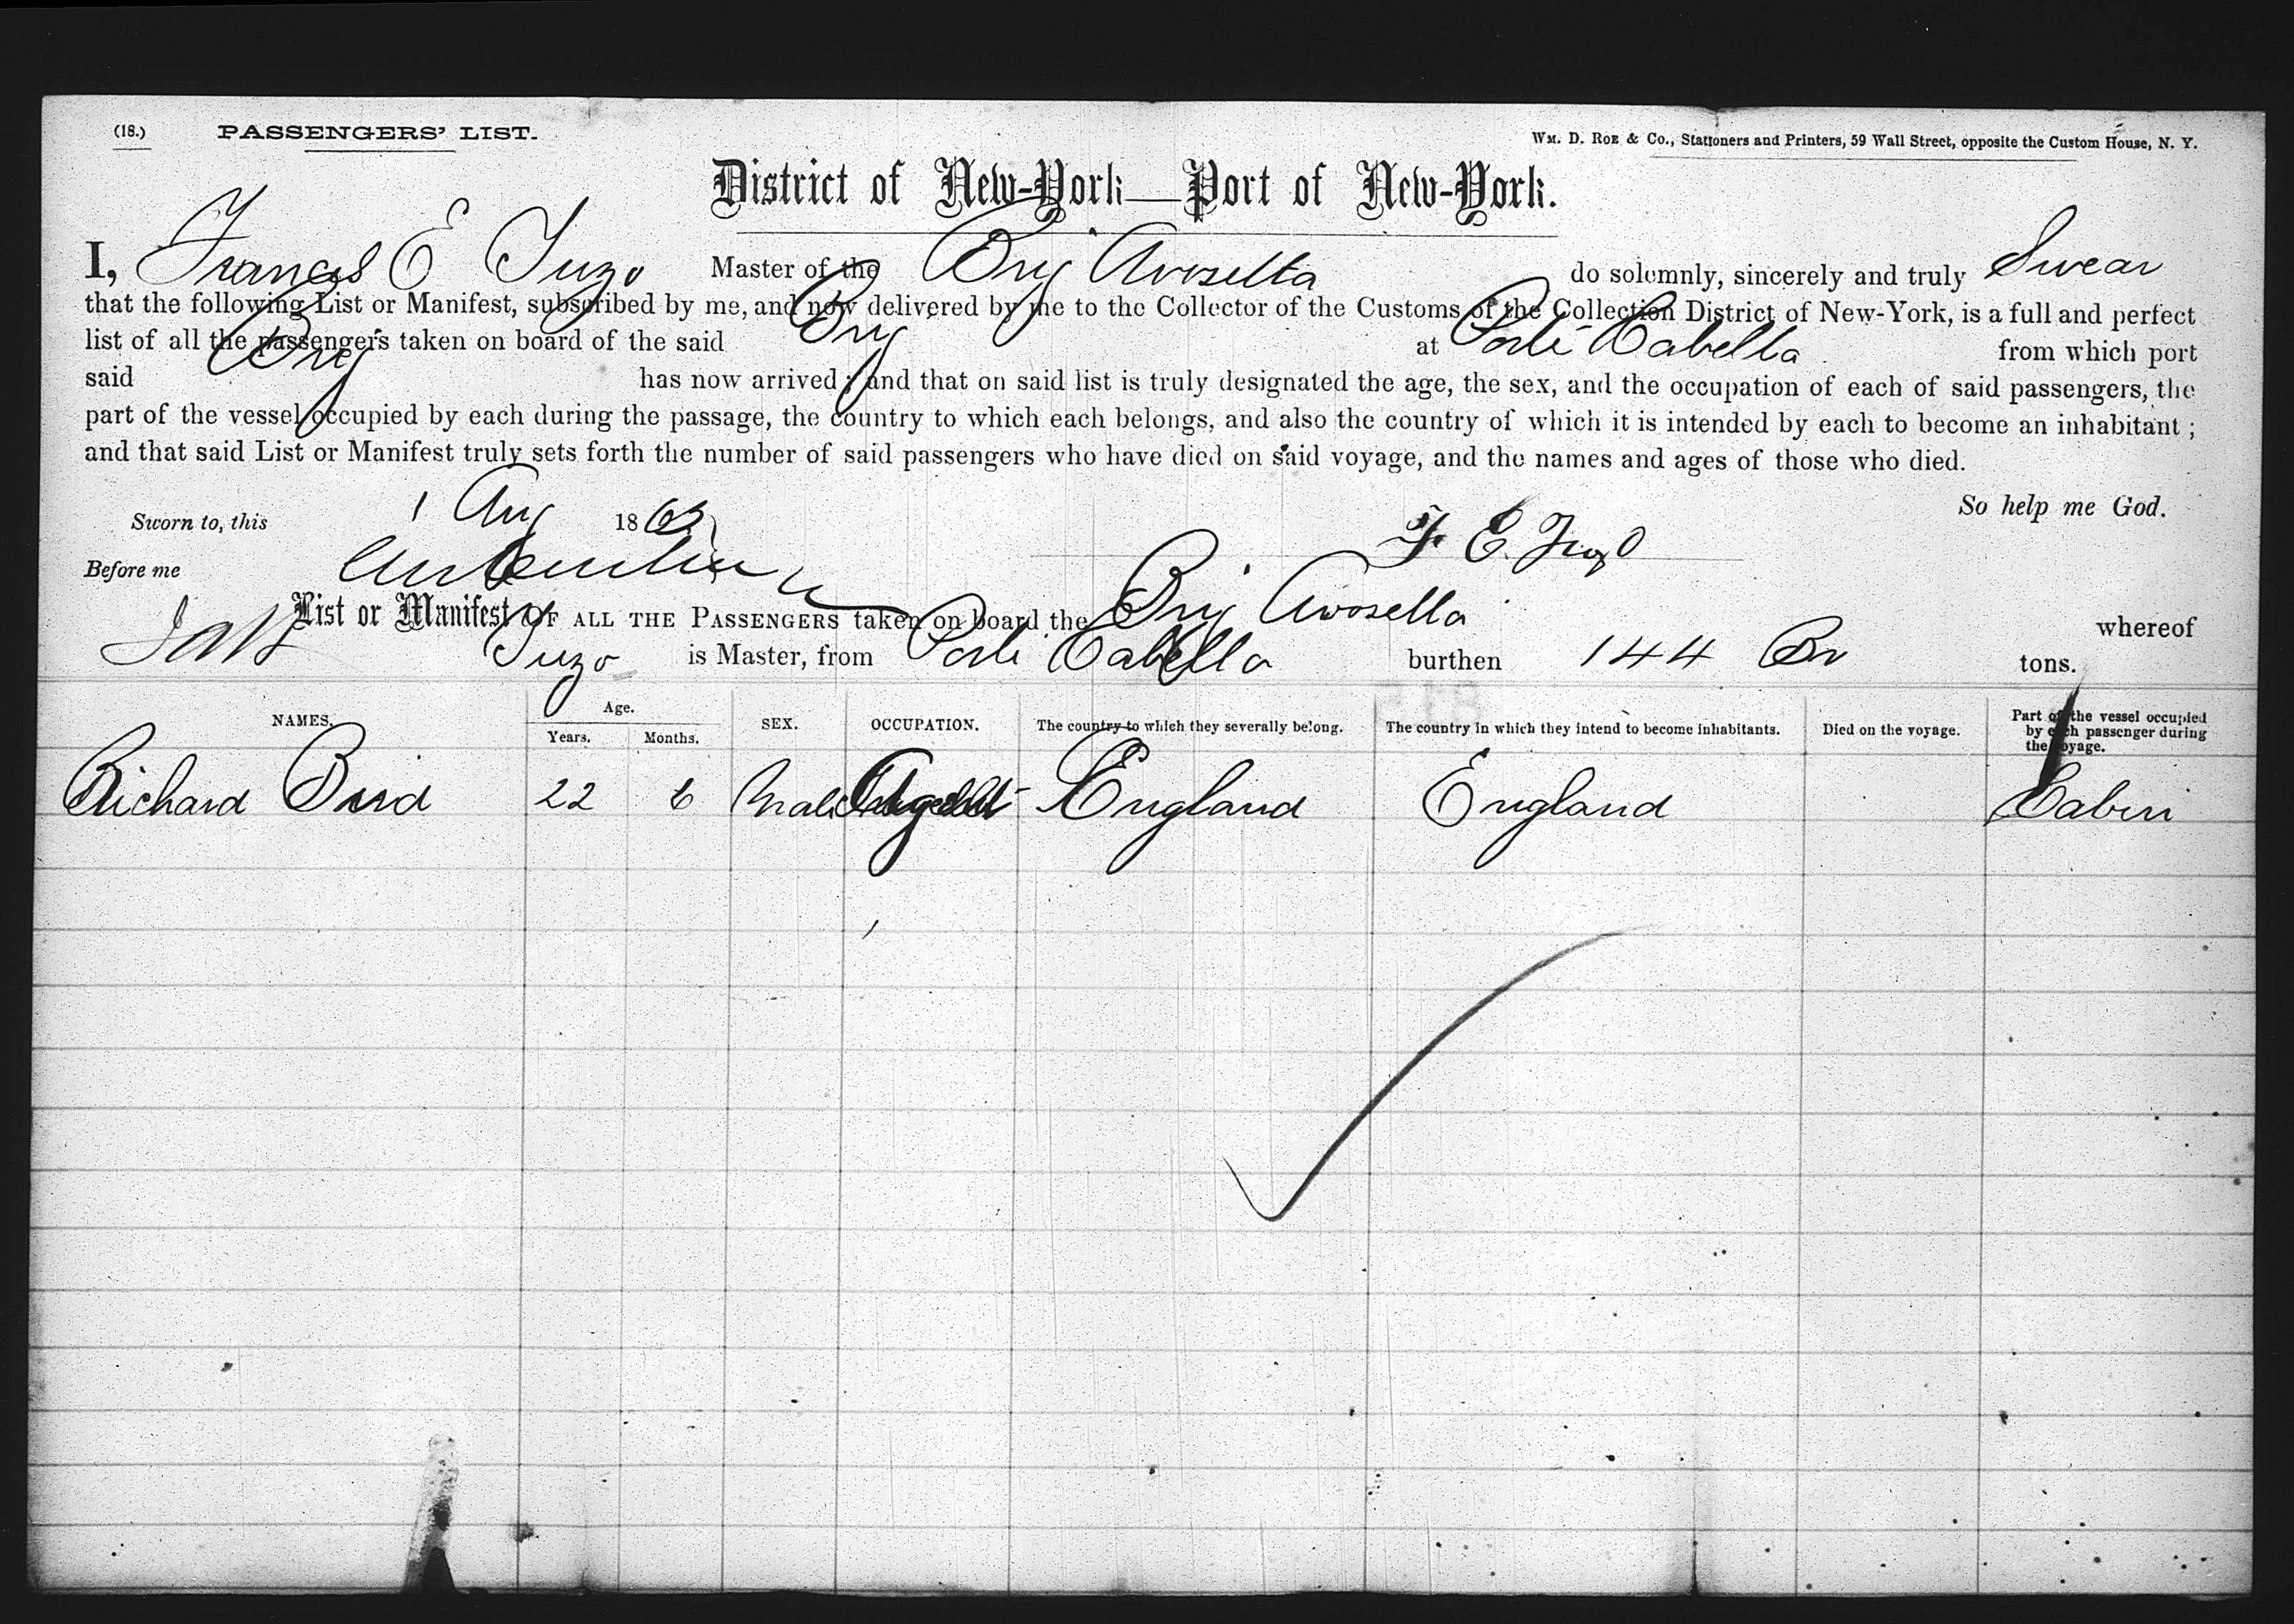 (18.) PASSENGERS' LIST. Wm. D. Roe & Co., Stationers and Printers, 59 Wall Street, opposite the Custom House, N. Y.
District of New-York—Port of New-York.
I, Frances E Tuzo Master of the Brig Avosella do solemnly, sincerely and truly Swear
that the following List or Manifest, subscribed by me, and now delivered by me to the Collector of the Customs of the Collection District of New-York, is a full and perfect
list of all the passengers taken on board of the said Brig at Porte Cabella from which port
said Brig has now arrived; and that on said list is truly designated the age, the sex, and the occupation of each of said passengers, the
part of the vessel occupied by each during the passage, the country to which each belongs, and also the country of which it is intended by each to become an inhabitant;
and that said List or Manifest truly sets forth the number of said passengers who have died on said voyage, and the names and ages of those who died.
So help me God.
Sworn to, this 1 Aug 186
F. E. Tuzo
Before me
List or Manifest OF ALL THE PASSENGERS taken on board the Brig Avosella whereof
Tuzo is Master, from Porte Cabella burthen 144 Br tons.
NAMES. Age. Years. Months. SEX. OCCUPATION. The country to which they severally belong. The country in which they intend to become inhabitants. Died on the voyage. Part of the vessel occupied by each passenger during the voyage.
Richard Bird 22 6 Male England England Cabin